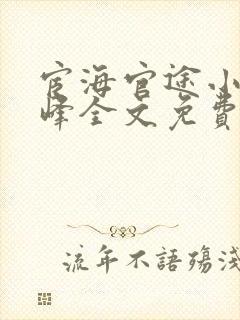 宦海官途小
峰全文免費
流年不語殤淺